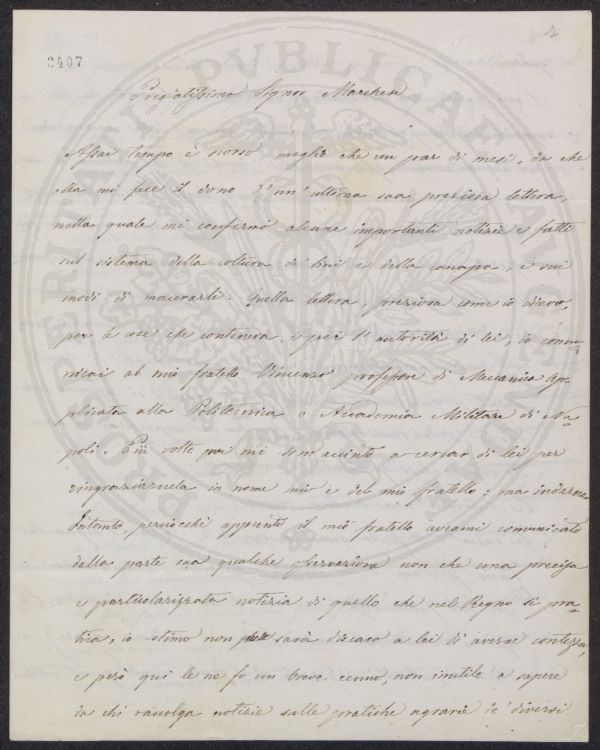 2407
1
Pregiatissimo Signor Marchese
Assai tempo è scorso meglio che un par di mesi, da che
Ella mi fece il dono d'un'ultima sua preziosa lettera,
nella quale mi confermò alcune importanti notizie e fatti
sul sistema della coltura de' lini e della canapa, e sui
modi di macerarli. Quella lettera, preziosa come io diceva,
per le cose che conteneva, e per l'autorità di lei, io comu-
nicai al mio fratello Vincenzo professore di Meccanica Ap-
plicata alla Politecnica o Accademia Militare di Na-
poli. Più volte mi son' accinto a cercar di lei per
ringraziarnela in nome mio e del mio fratello: ma indarno.
Intanto, perciocchè appunto il mio fratello aveami comunicato
dalla parte sua qualche osservazione non che una precisa
e particolarizzata notizia di quello che nel Regno si pra-
tica, io stimo non sarà discaro a lei di averne contezza,
e però qui le ne fo un breve cenno, non inutile a sapere
da chi raccolga notizie sulle pratiche agrarie de' diversi
PROSPERITATI PUBLICAE AUGENDAE